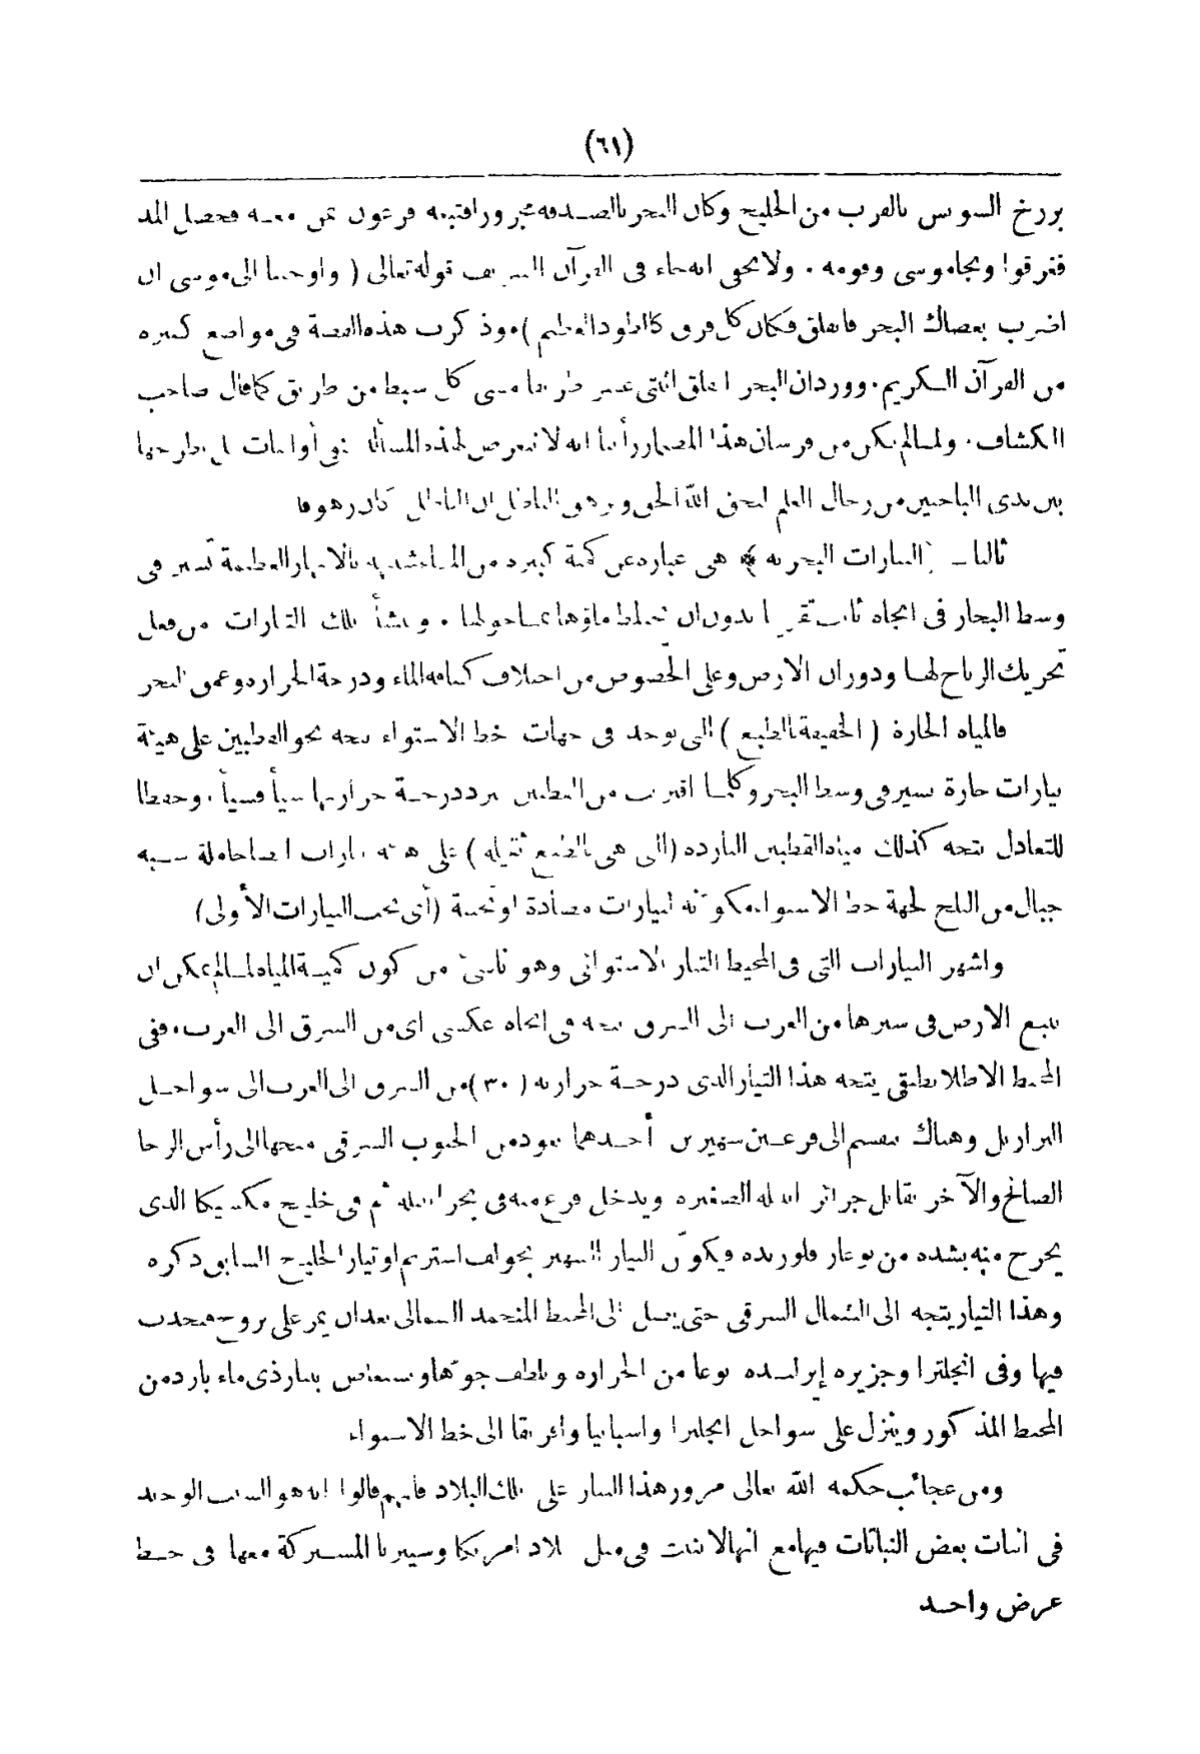 (٦١)
برزخ السويس بالقرب من الخليج وكان البحر بالصدفة مجزورا فتبعه فرعون بمن معه فحصل المد
فغرقوا ونجا موسى وقومه . ولا يخفى انه جاء فى القرآن الشريف قوله تعالى ( وأوحينا الى موسى ان
اضرب بعصاك البحر فانفلق فكان كل فرق كالطود العظيم ) وذكرت هذه القصة فى مواضع كثيرة
من القرآن الكريم . وورد ان البحر انفلق اثنى عشر طريقا مشى كل سبط من طريق كما قال صاحب
الكشاف . ولما لم يكن من فرسان هذا المضمار رأينا انه لا نتعرض لهذه المسألة نفيا أو اثبات بل نطرحها
بين يدى الباحثين من رجال العلم ليحق الله الحق ويزهق الباطل ان الباطل كان زهوقا
ثالثا - ﴿ التيارات البحرية ﴾ هى عبارة عن كمية كبيرة من الماء شبيهة بالانهار العظيمة تسير فى
وسط البحار فى اتجاه ثابت تقريبا بدون ان يختلط ماؤها بما حولها . وتنشأ تلك التيارات من فعل
تحريك الرياح لها ودوران الارض وعلى الخصوص من اختلاف كثافة الماء ودرجة الحرارة وعمق البحر
فالمياه الحارة ( الخفيفة بالطبع ) التى توجد فى جهات خط الاستواء تتجه نحو القطبين على هيئة
تيارات حارة تسير فى وسط البحر وكلما اقتربت من القطبين تبرد درجة حرارتها شيأ فشيأ . وحفظا
للتعادل تتجه كذلك مياه القطبين الباردة (التى هى بالطبع ثقيلة ) على هيئة تيارات ايضا حاملة شبه
جبال من الثلج لجهة خط الاستواء مكوّنة لتيارات مضادة او تحتية (أى تحت التيارات الأولى)
واشهر التيارات التى فى المحيط التيار الاستوائى وهو ناشئ من كون كمية المياه لما لم يمكن ان
تتبع الارض فى سيرها من الغرب الى الشرق تتجه فى اتجاه عكسى اى من الشرق الى الغرب . ففى
المحيط الاطلانطيقى يتجه هذا التيار الذى درجة حرارته ( ٣٠ )من الشرق الى الغرب الى سواحل
البرازيل وهناك ينقسم الى فرعين شهيرين أحدهما يعود من الجنوب الشرقى متجها الى رأس الرجا
الصالح والآخر يقابل جزائر انتيله الصغيرة ويدخل فرع منه فى بحر انتيله ثم فى خليج مكسيكا الذى
يخرج منه بشدة من بوغاز فلوريده ويكوّن التيار الشهير بجولف استريم او تيار الخليج السابق ذكره
وهذا التيار يتجه الى الشمال الشرقى حتى يصل الى المحيط المنجمد الشمالى بعد ان يمر على نروج فيحدث
فيها وفى انجلترا وجزيرة إيرلنده نوعا من الحرارة ويلطف جوّها ويستعاض بتيار ذى ماء بارد من
المحيط المذكور وينزل على سواحل انجلترا واسبانيا وافريقا الى خط الاستواء
ومن عجائب حكمة الله تعالى مرور هذا التيار على تلك البلاد فانهم قالوا انه هو السبب الوحيد
فى انبات بعض النباتات فيها مع انها لا تنبت فى مثل بلاد امريكا وسيبريا المشتركة معها فى خط
عرض واحد